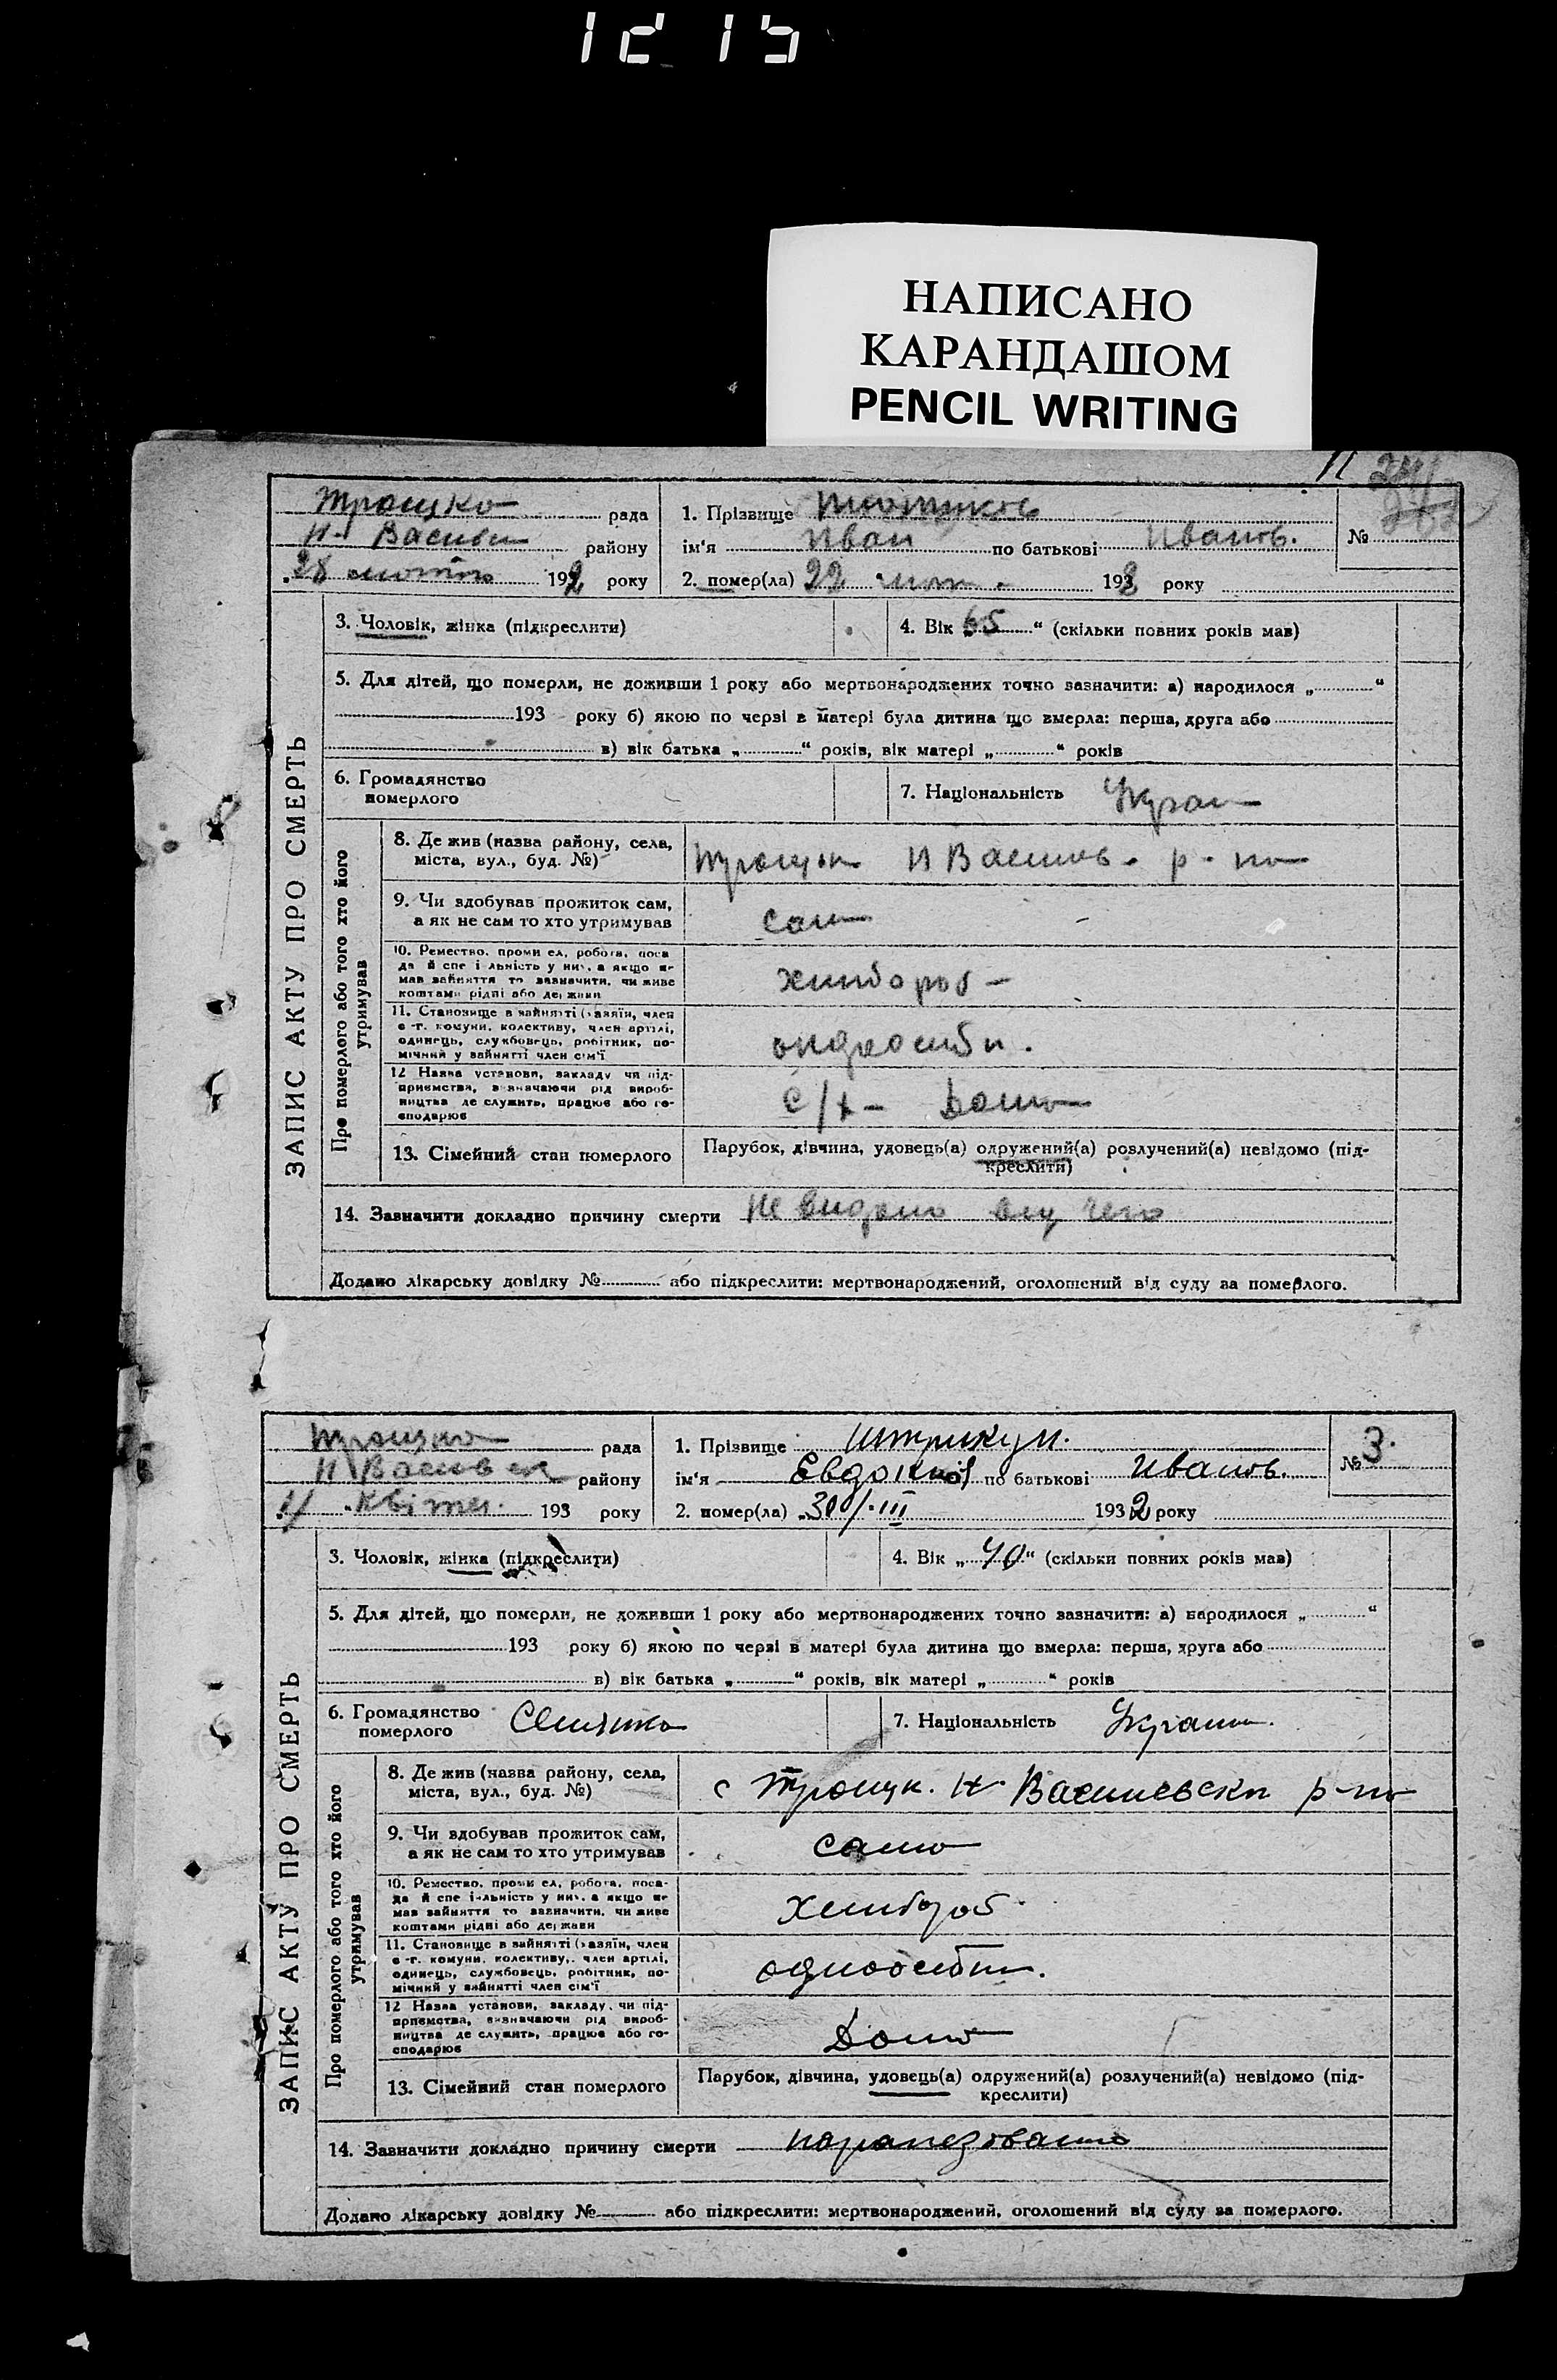 12 15
НАПИСАНО
КАРАНДАШОМ
PENCIL WRITING
Троицко рада
Н- Васильев району
28 лютого 1932 року
1. Прізвище
ім'я Иван по батькові Иванов.
2. помер(ла) 22 лют. 1932 року
№
ЗАПИС АКТУ ПРО СМЕРТЬ
3. Чоловік, жінка (підкреслити)
4. Вік „65“ (скільки повних років мав)
5. Для дітей, що померли, не доживши 1 року або мертвонароджених точно зазначити: а) народилося „ “
193 року б) якою по черзі в матері була дитина що вмерла: перша, друга або
в) вік батька „ “ років, вік матері „ “ років
6. Громадянство
померлого
7. Національність Украї
Про померлого або того хто його
утримував
8. Де жив (назва району, села,
міста, вул., буд. №)
Троицк Н Васильев. р-на
9. Чи здобував прожиток сам,
а як не сам то хто утримував
сам
10. Ремество, промисел, робота, поса
да й спеціяльність у них, а якщо не
мав зайняття то зазначити, чи живе
коштами рідні або держави
хлібороб-
11. Становище в зайнятті (хазяїн, член
с.-г. комуни, колективу, член артілі,
одинець, службовець, робітник, по-
мічний у зайнятті член сім'ї
12 Назва установи, закладу чи під-
приємства, визначаючи рід вироб-
ництва де служить, працює або го-
сподарює
С/х- Дома
13. Сімейний стан померлого
Парубок, дівчина, удовець(а) одружений(а) розлучений(а) невідомо (під-
креслити)
14. Зазначити докладно причину смерти
Додано лікарську довідку № або підкреслити: мертвонароджений, оголошений від суду за померлого.
Троицко рада
Н Васильевск району
4 Квітен. 193 року
1. Прізвище Штрикун.
ім'я Евдокия по батькові Иванов.
2. помер(ла) „30/III 1932 року
№ 3.
ЗАПИС АКТУ ПРО СМЕРТЬ
3. Чоловік, жінка (підкреслити)
4. Вік „40“ (скільки повних років мав)
5. Для дітей, що померли, не доживши 1 року або мертвонароджених точно зазначити: а) народилося „ “
193 року б) якою по черзі в матері була дитина що вмерла: перша, друга або
в) вік батька „ “ років, вік матері „ “ років
6. Громадянство
померлого
7. Національність Україн.
Про померлого або того хто його
утримував
8. Де жив (назва району, села,
міста, вул., буд. №)
с Троицк. Н- Васильевск р-на
9. Чи здобував прожиток сам,
а як не сам то хто утримував
сама
10. Ремество, промисел, робота, поса-
да й спеціяльність у них, а якщо не
мав зайняття то зазначити, чи живе
коштами рідні або держави
Хлибороб
11. Становище в зайнятті (хазяїн, член
с.-г. комуни, колективу, член артілі,
одинець, службовець, робітник, по-
мічний у зайнятті член сім'ї
одноосибн.
12 Назва установи, закладу, чи під-
приємства, визначаючи рід вироб-
ництва де служить, працює або го-
сподарює
Дома
13. Сімейний стан померлого
Парубок, дівчина, удовець(а) одружений(а) розлучений(а) невідомо (під-
креслити)
14. Зазначити докладно причину смерти
Додано лікарську довідку № або підкреслити: мертвонароджений, оголошений від суду за померлого.